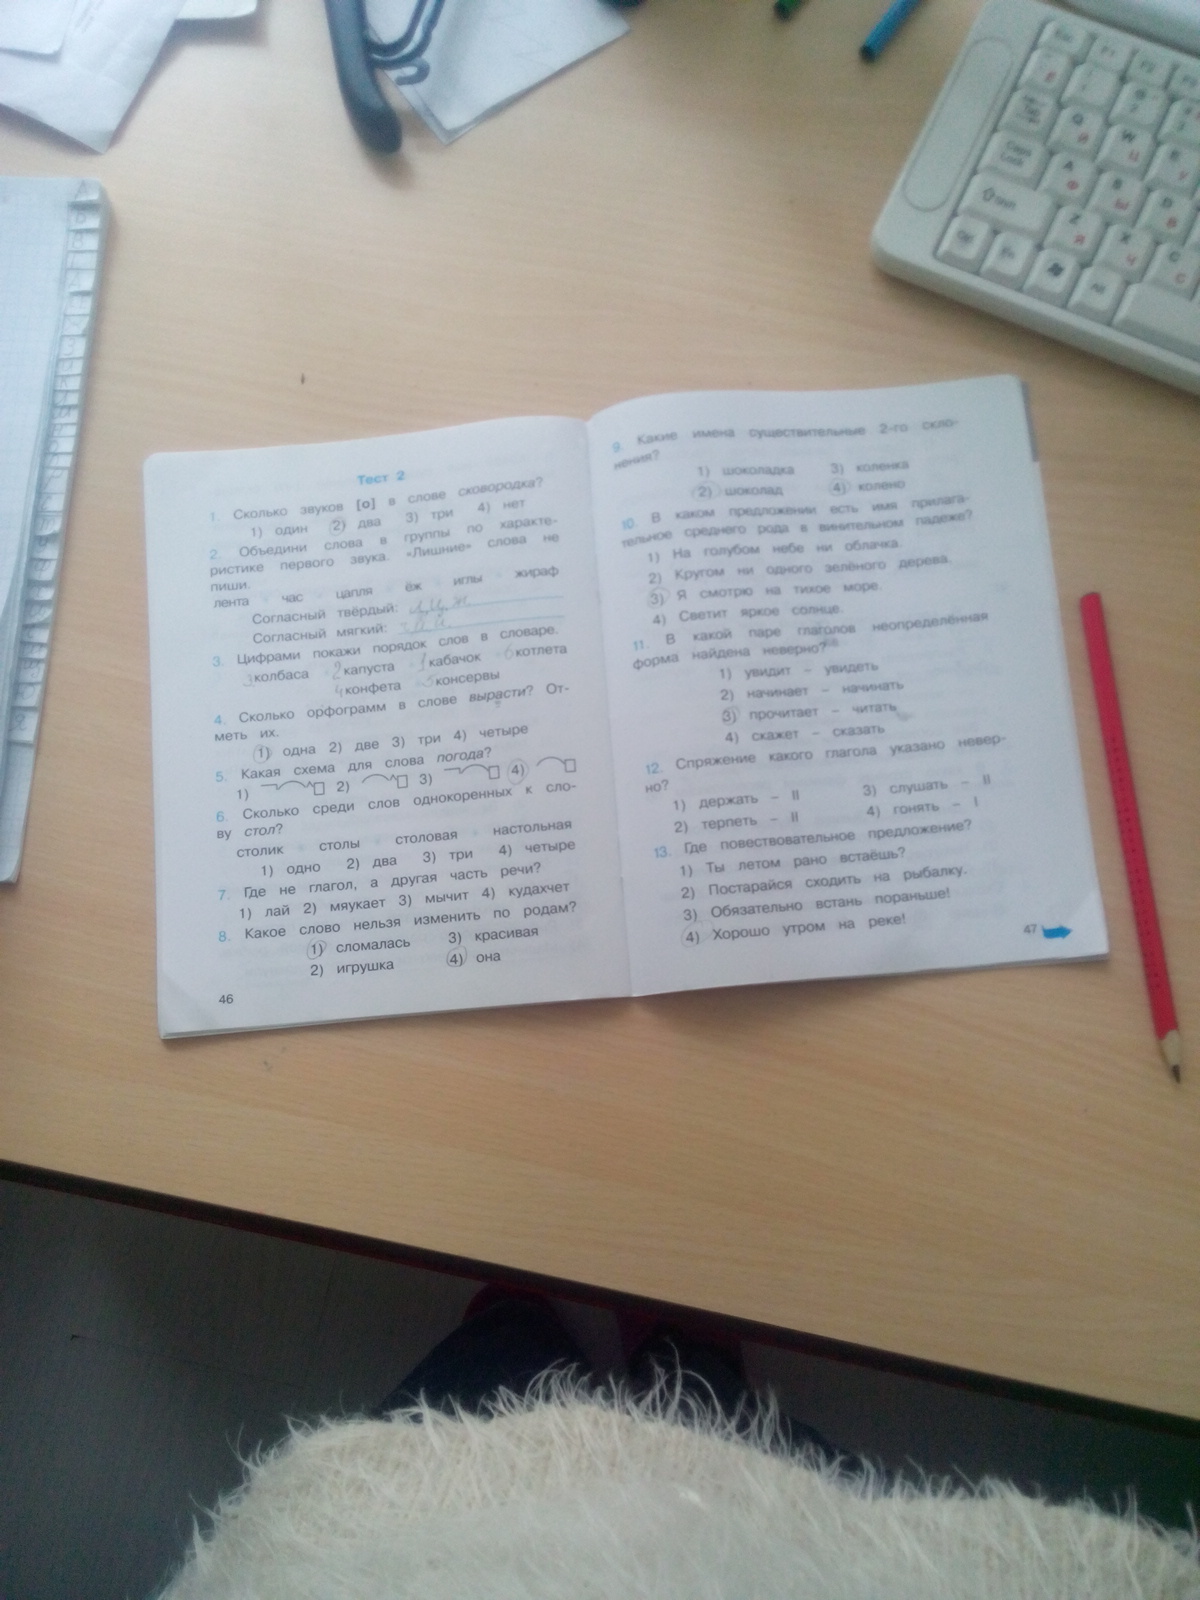 Тест 2
1. Сколько звуков [о] в слове сковородка?
1) один 2) два 3) три 4) нет
2. Объедини слова в группы по характе-
ристике первого звука. «Лишние» слова не
пиши.
лента час цапля ёж иглы жираф
Согласный твёрдый:
Согласный мягкий:
3. Цифрами покажи порядок слов в словаре.
3 колбаса 2 капуста 1 кабачок 6 котлета
4 конфета 5 консервы
4. Сколько орфограмм в слове вырасти? От-
меть их.
1) одна 2) две 3) три 4) четыре
5. Какая схема для слова погода?
1) 2) 3) 4)
6. Сколько среди слов однокоренных к сло-
ву стол?
столик столы столовая настольная
1) одно 2) два 3) три 4) четыре
7. Где не глагол, а другая часть речи?
1) лай 2) мяукает 3) мычит 4) кудахчет
8. Какое слово нельзя изменить по родам?
1) сломалась 3) красивая
2) игрушка 4) она
46
9. Какие имена существительные 2-го скло-
нения?
1) шоколадка 3) коленка
2) шоколад 4) колено
10. В каком предложении есть имя прилага-
тельное среднего рода в винительном падеже?
1) На голубом небе ни облачка.
2) Кругом ни одного зелёного дерева.
3) Я смотрю на тихое море.
4) Светит яркое солнце.
11. В какой паре глаголов неопределённая
форма найдена неверно?
1) увидит – увидеть
2) начинает – начинать
3) прочитает – читать
4) скажет – сказать
12. Спряжение какого глагола указано невер-
но?
1) держать – II 3) слушать – II
2) терпеть – II 4) гонять – I
13. Где повествовательное предложение?
1) Ты летом рано встаёшь?
2) Постарайся сходить на рыбалку.
3) Обязательно встань пораньше!
4) Хорошо утром на реке!
47